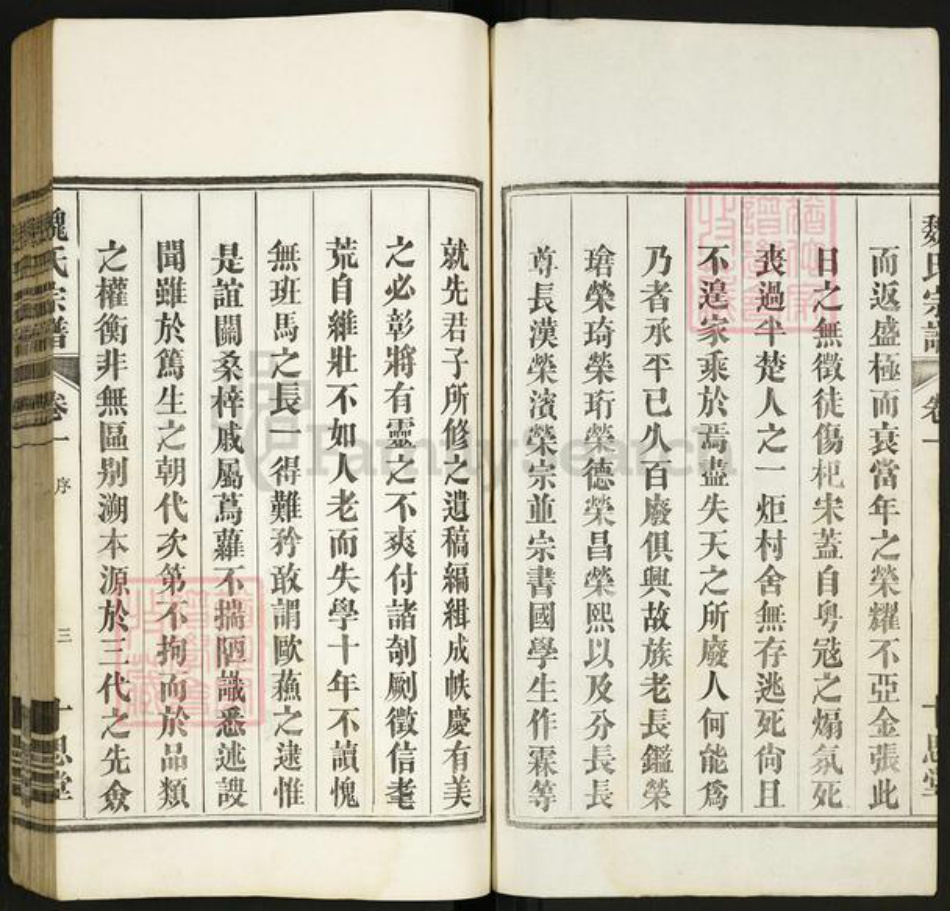 魏氏宗譜
卷一
十思堂
而返盛極而衰當年之榮耀不亞金張此
日之無徵徒傷杞宋蓋自粤寇之煽氛死
喪過半楚人之一炬村舍無存逃死尙且
不遑家乘於焉盡失天之所廢人何能爲
乃者承平已久百廢俱興故族老長鑑榮
瑲榮琦榮珩榮德榮昌榮熙以及分長長
尊長漢榮濱榮宗並宗書國學生作霖等
就先君子所修之遺稿編緝成帙慶有美
之必彰將有靈之不爽付諸剞劂徵信耄
荒自維壯不如人老而失學十年不讀愧
無班馬之長一得難矜敢謂歐蘓之逮惟
是誼關桑梓戚屬蔦蘿不揣陋識悉述謏
聞雖於篤生之朝代次第不拘而於品類
之權衡非無區别溯本源於三代之先僉
魏氏宗譜
卷一
序
三
十思堂
FamilySearch